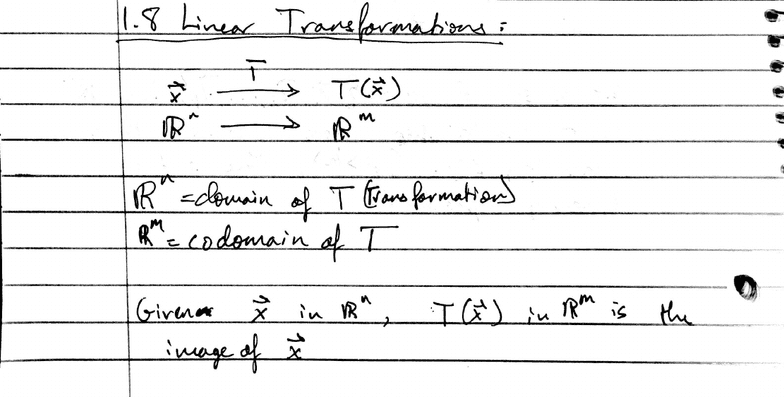 1.8 Linear Transformations:
T
x⃗ ⟶ T(x⃗)
ℝⁿ ⟶ ℝᵐ
ℝⁿ = domain of T (Transformation)
ℝᵐ = codomain of T
Given x⃗ in ℝⁿ, T(x⃗) in ℝᵐ is the
image of x⃗